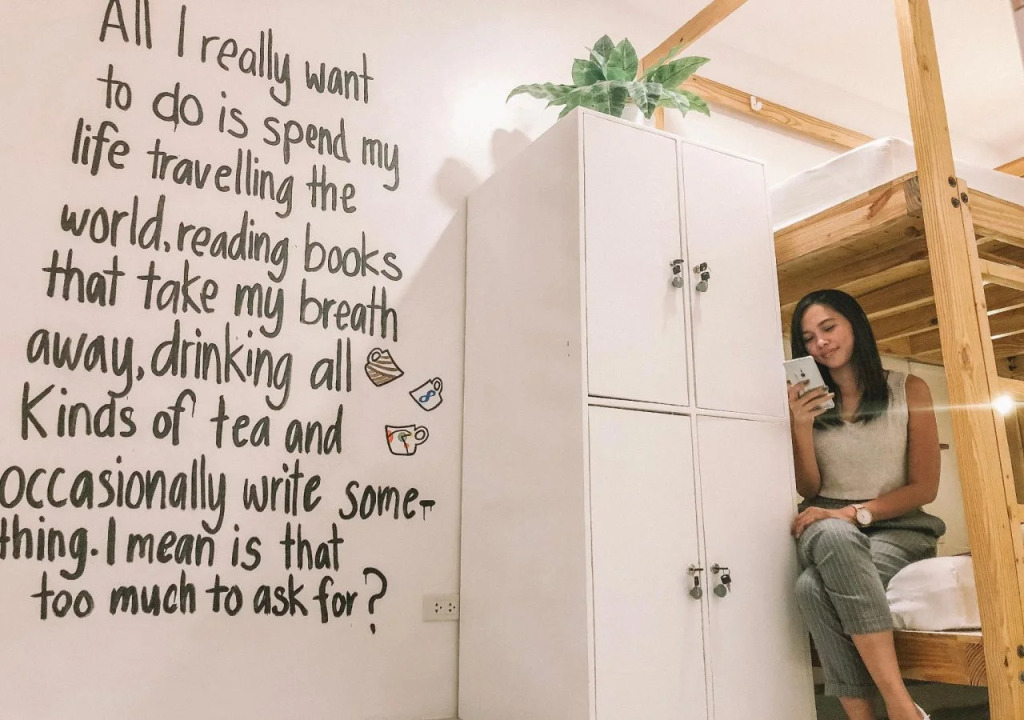 All I really want
to do is spend my
life travelling the
world, reading books
that take my breath
away, drinking all
Kinds of tea and
occasionally write some-
thing. I mean is that
too much to ask for?